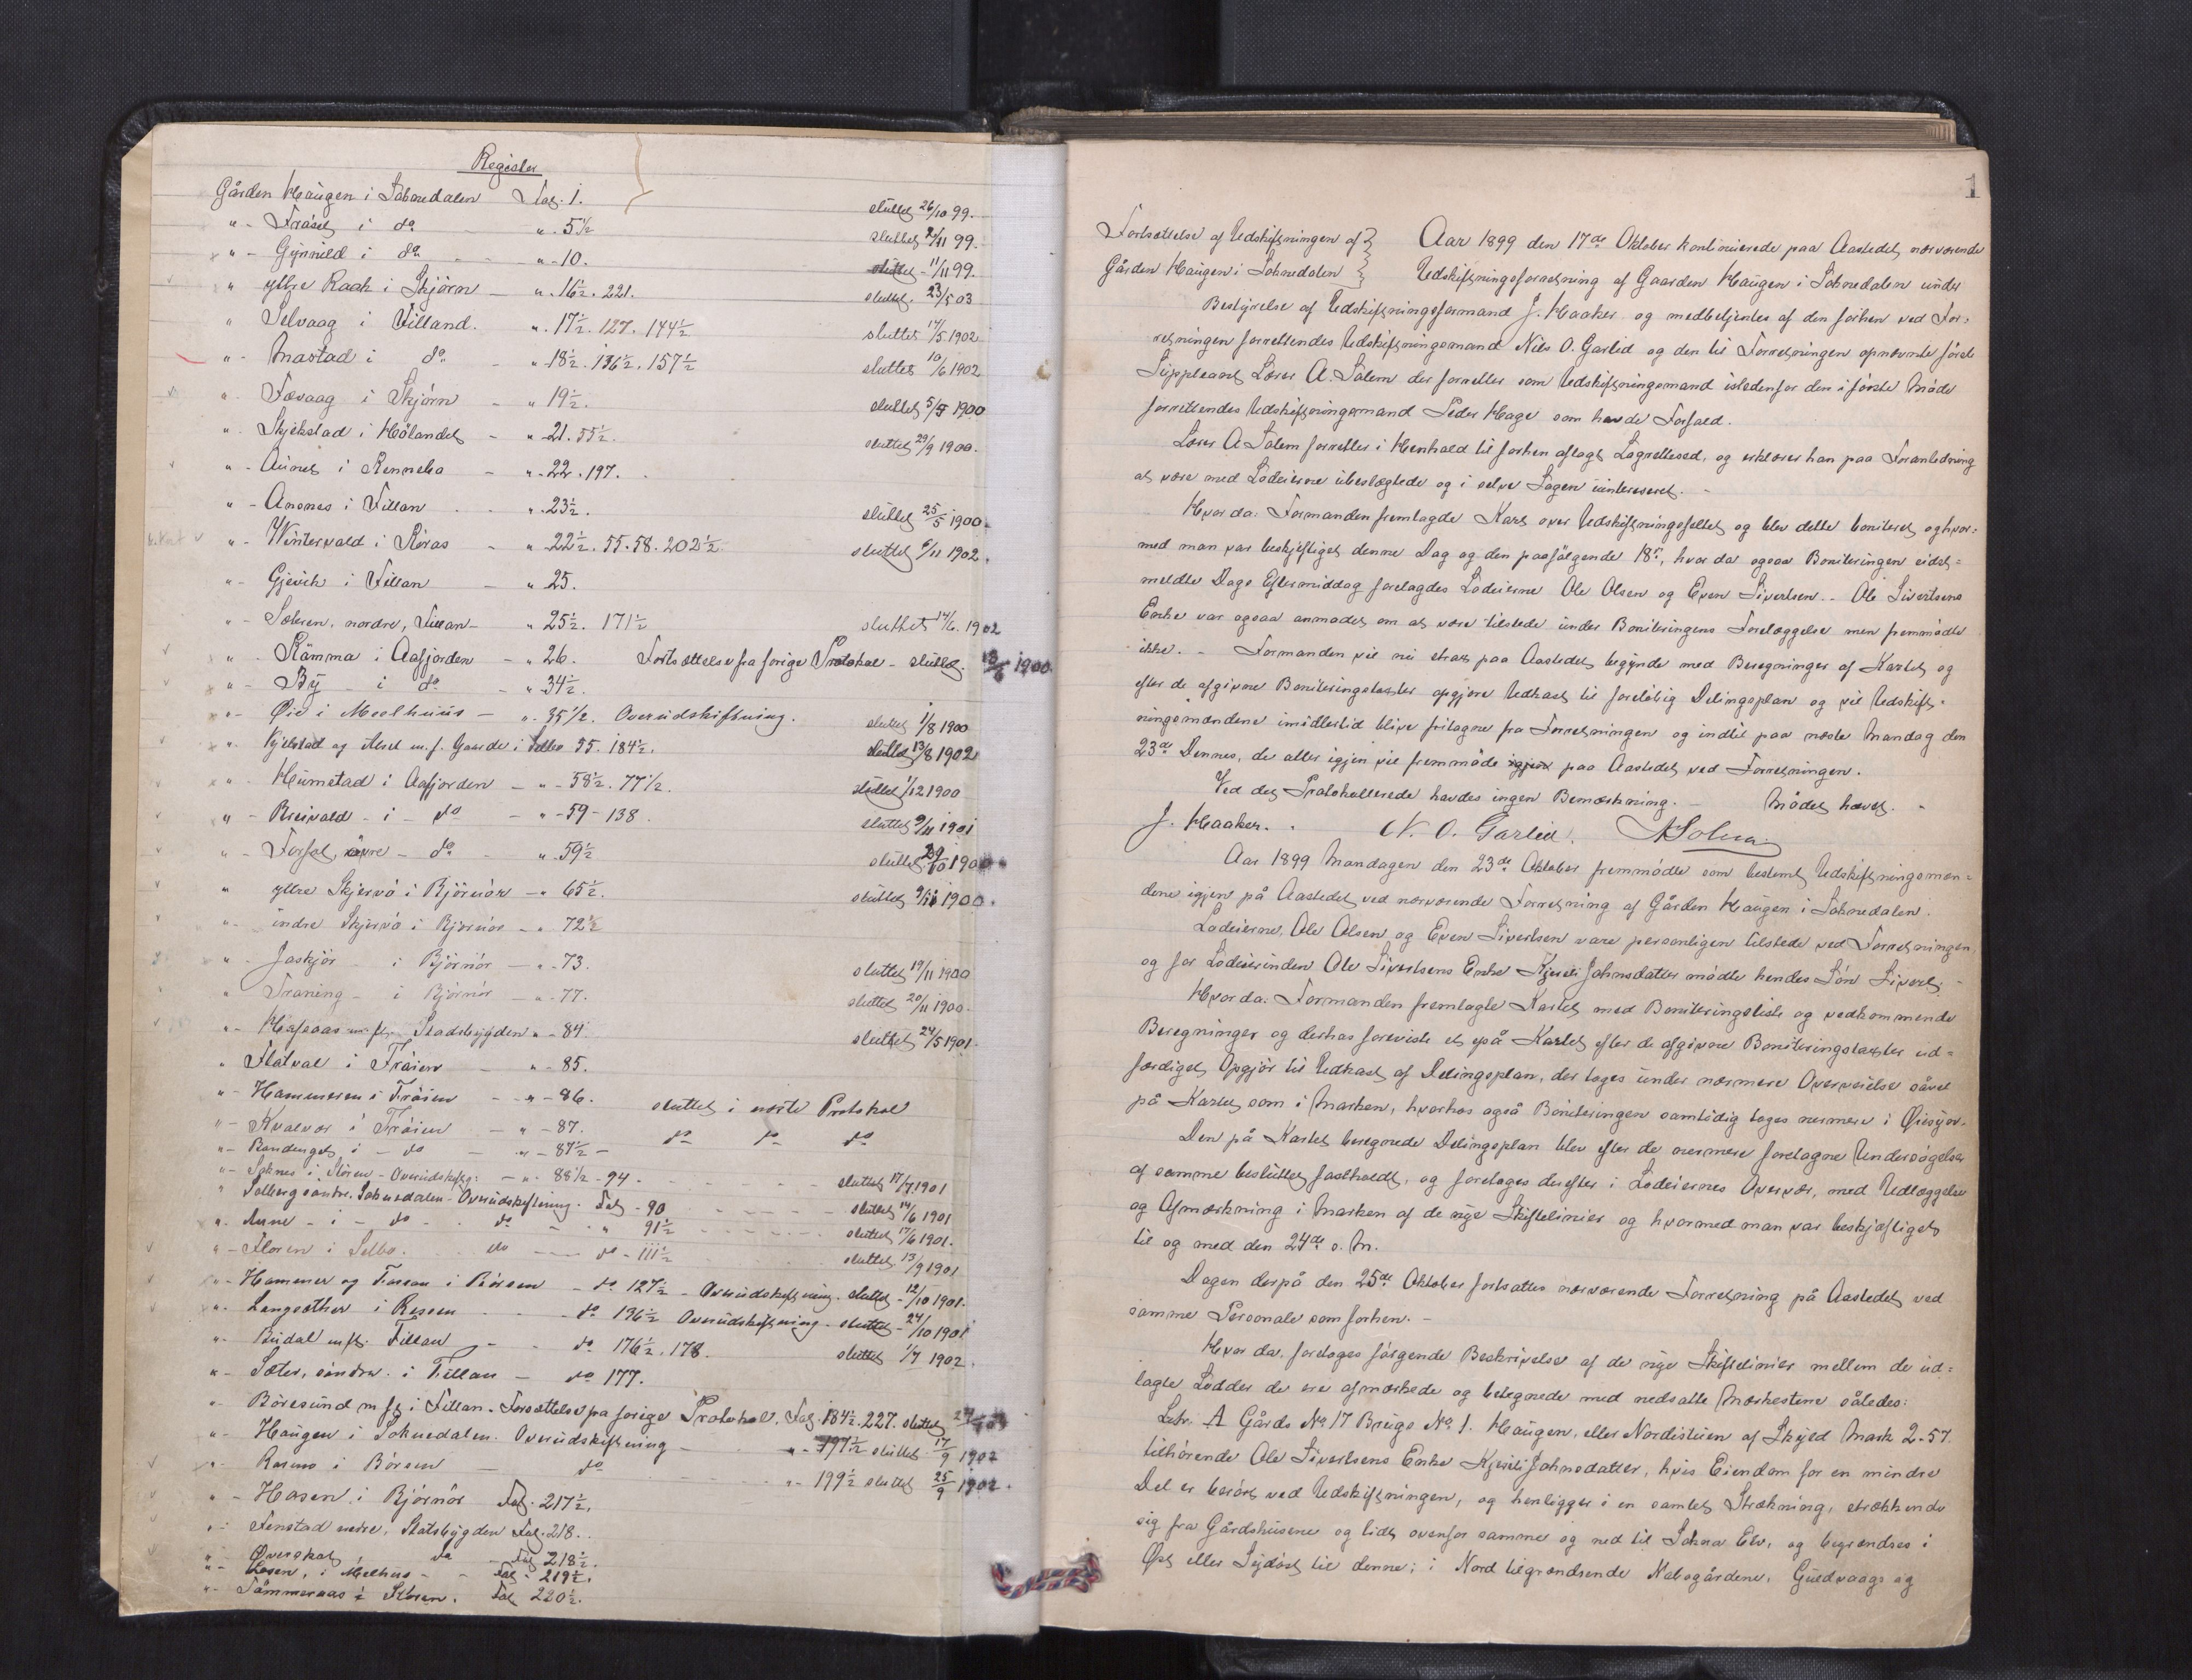 Register
Gården Haugen i Soknedalen Fol. 1. sluttet 26/10 99.
" - Fraset i do " 5½ sluttet 2/11 99.
" - Gynnild i do " - 10. sluttet - 11/11 99.
" ytre Raak i Skjørn - " . 16½. 221. sluttet. 23/5 03
" Selvaag i Filland. " . 17½. 127. 144½ sluttet 17/5 1902
" - Mastad i do - " 18½. 136½. 157½ sluttet 10/6 1902
" - Fævaag i Skjørn - " 19½. sluttet 5/5 1900
" - Skjelstad i Hølandet - " 21. 55½. sluttet 29/9 1900.
" - Aunet i Rennebo - " . 22 . 197.
" - Ansnes i Fillan " . 23½. sluttet 25/5 1900.
" - Wintervold i Røras - " 22½. 55. 58. 202½ sluttet 6/11 1902.
" - Gjevik i Fillan - " 25.
" - Sæteren, nordre, Fillan - " 25½. 171½ sluttet 14/6. 1902
" - Rømma i Aafjorden - " 26. Fortsættelse fra forige Protokol - sluttet. 1900.
" - By - i do - " 34½.
" - Øie i Meelhuus - " . 35 1/2. Overudskiftning. sluttet 1/8 1900
" m. f. Gaarde i Selbo 55. 184½. sluttet 13/8 1902
" - Humstad i Aafjorden - " - 58½. 77½. sluttet 1/12 1900
" - Breivold - i - do - " - 59 - 138. sluttet 9/11 1901
" - Forfot, øvre - do " . 59½ sluttet 1900
" ytre Skjervø i Bjørnør - " 65½. sluttet 9/11 1900.
" - indre Skjervø i Bjørnør - " 72½
" - Jøskjør i Bjørnør - " . 73. sluttet 19/11 1900
" Traning - i Bjørnør - " . 77. sluttet 20/11 1900.
" - Hafsaas m. fl. Stadsbygden " - 84. sluttet 24/5 1901.
" Flatval i Frøien " - 85.
" - Hammeren i Frøien - " - 86. sluttet i næste Protokol
" - Kvalvær i Frøien - " - 87. do do do
" - i - do - " - 87½ -
" - Soknes i Støren - Overudskiftg: - " . 88½ - 94. sluttet 17/7 1901
" Solberg søndre. Soknedalen - Overudskiftning. Fol - 90 sluttet 14/6 1901
" - Aune - i - do - do - " 91½ sluttet 17/6 1901.
" - Floren i Selbo. do do - 111½ sluttet. 13/9 1901
" - Hammer og Fossan i Børsen - do 127½ - Overudskiftning. sluttet - 12/10 1901.
" - Langsæther i Rissen - do 136½ Overudskiftning. sluttet - 24/10 1901
" - Budal m. fl. Fillan - do 176½. 178. sluttet 1/7 1902.
" - Sæter, søndre. i Fillan - do 177.
" - Børøsund m fl i Fillan. Forsættelse fra forige Protokol. Fol. 184½. 227. sluttet
" - Haugen i Soknedalen. Overudskiftning - " - 197½ sluttet 17/9 1902
" - Rosmo i Børsen - do " - 199½ sluttet 25/9 1902.
" - Hosen i Bjørnør Fol. 217½.
" - Fenstad nedre, Statsbygden Fol. 218.
" - Øverskot do Fol 218½.
" - Losen, i Melhus - Fol - 219½.
" - Tømmeraas i Støren. Fol 220½.
1
Fortsættelse af Udskiftningen af
Gården Haugen i Soknedalen
Aar 1899 den 17de Oktober kontinuerede paa Aastedet nærværende
Udskiftningsforretning af Gaarden Haugen i Soknedalen under
Bestyrelse af Udskiftningsformand J. Haaker og medbetjentes af den forhen ved For-
retningen forrettendes Udskiftningsmand Nils O. Garlid og den til Forretningen opnævnte første
Suppleant Lærer A. Solem der forretter som Udskiftningsmand istedenfor den i første Møde
forrettendes Udskiftningsmand Peder Hage som havde Forfald.
Lærer A Solem forretter i Henhold til forhen aflagt Lagretteseed, og erklærer han paa Foranledning
at være med Lodeierne ubeslægtede og i selve Sagen uinteresseret. -
Hvorda: Formanden fremlagde Kart over Udskiftningsfeltet og blev dette boniteret oghvor-
med man var beskjeftiget denne Dag og den paafølgende 18de, hvor da ogsaa Boniteringen sidst-
meldte Dags Eftermiddag forelagdes Lodeierne Ole Olsen og Even Sivertsen. - Ole Sivertsens
Enke var ogsaa anmodet om at være tilstede under Boniteringens Forelæggelse men fremmødte
ikke. - Formanden vil nu strax paa Aastedet begynde med Beregninger af Kartet og
efter de afgivne Boniteringstaxter opgjøre Udkast til foreløbig Delingsplan og vil Udskift-
ningsmændene imidlertid blive fritagne fra Forretningen og indtil paa næste Mandag den
23de Dennes, de atter igjen vil fremmøde igjen paa Aastedet ved Forretningen.
Ved det Protokollerede havdes ingen Bemærkning. - Mødet hævet. -
J. Haaker. . N. O. Garlid. ASolem
Aar 1899 Mandagen den 23de Oktober fremmødte som bestemt Udskiftningsmæn-
dene igjen på Aastedet ved nærværende Forretning af Gården Haugen i Soknedalen.
Lodeierne, Ole Olsen og Even Sivertsen vare personligen tilstede ved Forretningen
og for Lodeierinden Ole Sivertsens Enke Kjersti Johnsdatter mødte hendes Søn Sivert. -
Hvorda: Formanden fremlagte Kartet med Boniteringsliste og vedkommende
Beregninger og derhos foreviste et på Kartet efter de afgivne Boniteringstaxter ud-
færdiget Opgjør til Udkast af Delingsplan, der toges under nærmere Overveielse såvel
på Kartet som i Marken, hvorhos også Boniteringen samtidig toges nermere i Øiesyn.
Den på Kartet beregnede Delingsplan blev efter de nærmere foretagne Undersøgelser
af samme besluttet fastholdt, og foretoges derefter i Lodeiernes Overvær, med Udlæggelse
og Afmærkning i Marken af de nye Skiftelinier og hvormed man var beskjæftiget
til og med den 24de s. M.
Dagen derpå den 25de Oktober fortsattes nærværende Forretning på Aastedet ved
samme Personale som forhen. -
Hvor da, foretoges følgende Beskrivelse af de nye Skiftelinier mellem de ud-
lagte Lodder de ere afmærkede og betegnede med nedsatte Mærkestene således:
Litr. A Gårds No 17 Brugs No 1. Haugen, eller Nordistuen af Skyld Mark 2-57.
tilhørende Ole Sivertsens Enke Kjersti Johnsdatter, hvis Eiendom for en mindre
Del er berørt ved Udskiftningen, og henligger i en samlet Strækning, strækkende
sig fra Gårdshusene og lidt ovenfor samme og ned til Sokna Elv, og begrændses i
Øst eller Sydøst til denne; i Nord tilgrændsende Nabogårdene, Guldvaag og